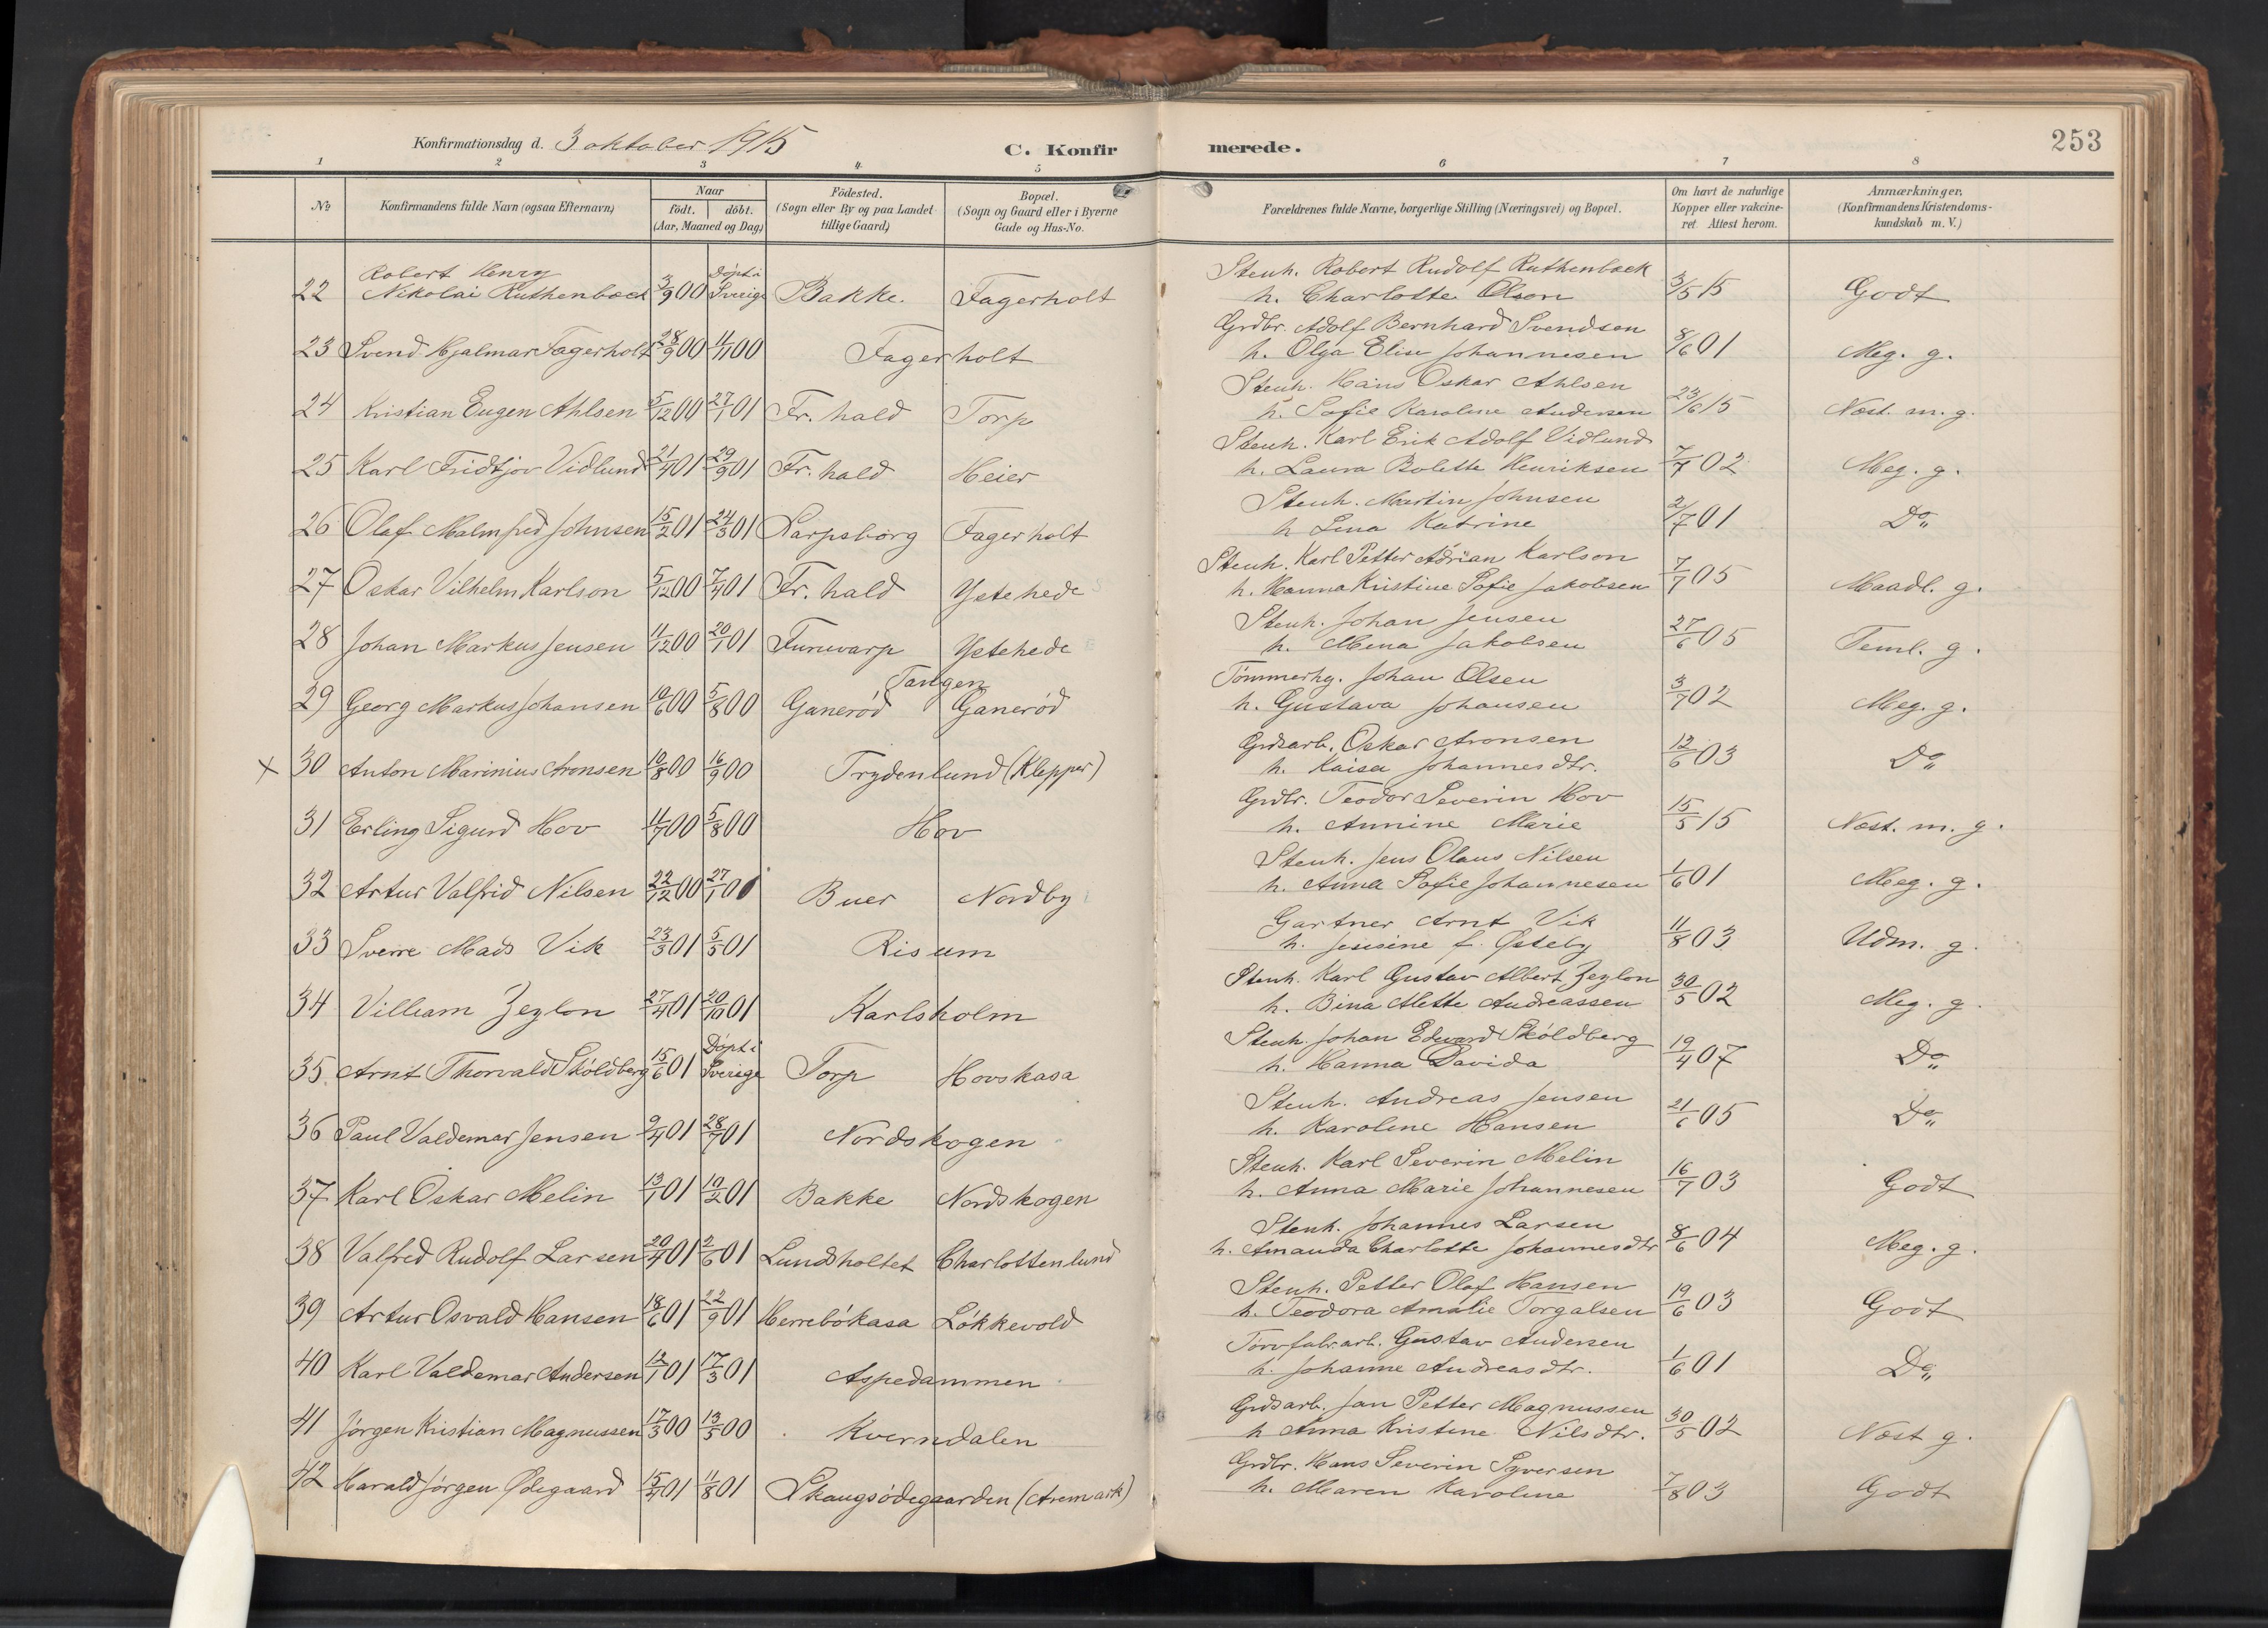 Konfirmationsdag d. 3 oktober 1915
C. Konfirmerede.
253
1 2 3 4 5 6 7 8
No
Konfirmandens fulde Navn (ogsaa Efternavn)
Naar
født. døbt.
(Aar, Maaned og Dag)
Fødested.
(Sogn eller By og paa Landet
tillige Gaard)
Bopæl.
(Sogn og Gaard eller i Byerne
Gade og Hus-No.
Forældrenes fulde Navne, borgerlige Stilling (Næringsvei) og Bopæl.
Om havt de naturlige
Kopper eller vakcine-
ret. Attest herom.
Anmærkninger,
(Konfirmandens Kristendoms-
kundskab m. V.)
22 Robert Henry Nikolai Ruthenback 3/9 00 Döpt i Sverige Bakke. Fagerholt
Stenh. Robert Rudolf Ruthenback
h. Charlotte Olson 3/5 15 Godt
23 Svend Hjalmar Fagerholt 28/9 00 4/11 00 Fagerholt
Grdbr. Adolf Bernhard Svendsen
h. Olga Elise Johannesen 8/6 01 Meg. g.
24 Kristian Eugen Ahlsen 5/12 00 27/1 01 Fr. hald Torp
Stenh. Hans Oskar Ahlsen
h. Sofie Karoline Andersen 23/6 15 Næst. m. g.
25 Karl Fridtjov Vidlund 21/4 01 29/9 01 Fr. hald Heier
Stenh. Karl Erik Adolf Vidlund
h. Laura Bolette Henriksen 7/7 02 Meg. g.
26 Olaf Malmfred Johnsen 15/2 01 24/3 01 Sarpsborg Fagerholt
Stenh. Martin Johnsen
h. Lina Katrine 2/7 01 Do
27 Oskar Vilhelm Karlson 5/12 00 7/4 01 Fr. hald Ystehede
Stenh. Karl Petter Adrian Karlson
h. Hanna Kristine Sofie Jakobsen 7/7 05 Maadl. g.
28 Johan Markus Jensen 11/12 00 20/1 01 Furuvarp Ystehede
Stenh. Johan Jensen
h. Mina Jakobsen 27/6 05 Teml. g.
29 Georg Markus Johansen 10/6 00 5/8 00 Tangen Ganerød Ganerød
Tømmerhg. Johan Olsen
h. Gustava Johansen 3/7 02 Meg. g.
x 30 Anton Marinius Aronsen 10/8 00 16/9 00 Frydenlund (Klepper)
Grdsarb. Oskar Aronsen
h. Kaisa Johannesdtr. 12/6 03 Do
31 Erling Sigurd Hov 11/7 00 5/8 00 Hov
Grdbr. Teodor Severin Hov
h. Annine Marie 15/5 15 Næst. m. g.
32 Artur Valfrid Nilsen 22/12 00 27/1 00 Buer Nordby
Stenh. Jens Olaus Nilsen
h. Anna Sofie Johannesen 1/6 01 Meg. g.
33 Sverre Mads Vik 23/3 01 5/5 01 Risum
Gartner Arnt Vik
h. Jensine f. Østeby 11/8 03 Udm. g.
34 Villiam Zeylon 27/4 01 20/10 01 Karlsholm
Stenh. Karl Gustav Albert Zeylon
h. Bina Alette Andreassen 30/5 02 Meg. g.
35 Arnt Thorvald Sköldberg 15/6 01 Döpt i Sverige Torp Hovskasa
Stenh. Johan Edvard Sköldberg
h. Hanna Davida 19/4 07 Do
36 Paul Valdemar Jensen 9/4 01 28/7 01 Nordskogen
Stenh. Andreas Jensen
h. Karoline Hansen 21/6 05 Do
37 Karl Oskar Melin 13/1 01 10/2 01 Bakke Nordskogen
Stenh. Karl Severin Melin
h. Anna Marie Johannesen 16/7 03 Godt
38 Valfred Rudolf Larsen 20/4 01 2/6 01 Lundsholtet Charlottenlund
Stenh. Johannes Larsen
h. Amanda Charlotte Johannesdtr 8/6 04 Meg. g.
39 Artur Osvald Hansen 18/6 01 22/9 01 Herrebökasa Lökkevold
Stenh. Petter Olaf Hansen
h. Teodora Amalie Torgalsen 19/6 03 Godt
40 Karl Valdemar Andersen 12/1 01 17/3 01 Aspedammen
Torvfabr.arb. Gustav Andersen
h. Johanne Andreasdtr. 1/6 01 Do
41 Jørgen Kristian Magnussen 17/3 00 13/5 00 Kverndalen
Grdsarb. Jan Petter Magnussen
h Anna Kristine Nilsdtr. 30/5 02 Næst g.
42 Harald Jørgen Ødegaard 15/4 01 11/8 01 Skaugsödegaarden (Aremark)
Grdbr. Hans Severin Syversen
h. Maren Karoline 7/8 03 Godt